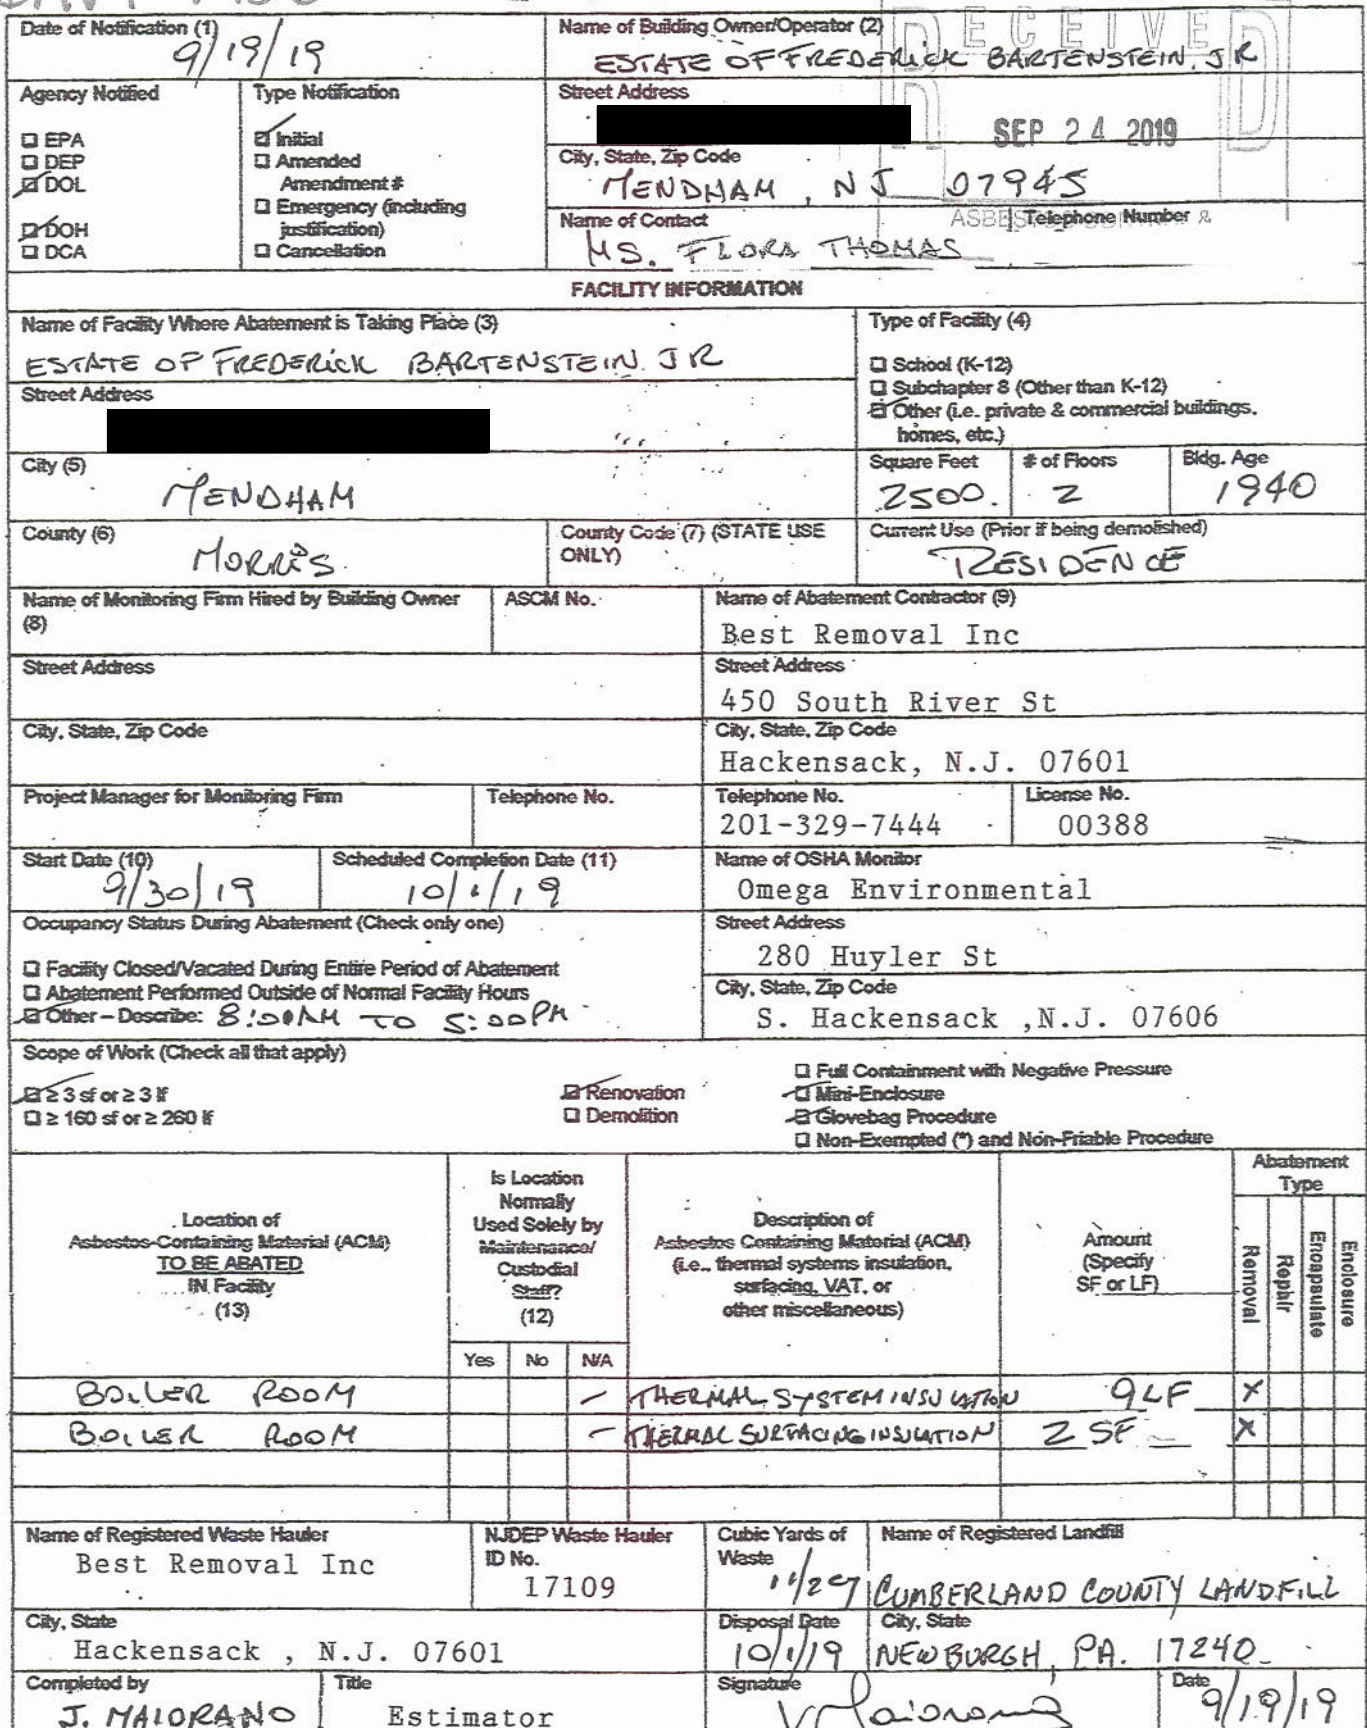 Date of Notification (1)
9/19/19
Name of Building Owner/Operator (2)
ESTATE OF FREDERICK BARTENSTEIN. JR
RECEIVED
Agency Notified
☐ EPA
☐ DEP
☑ DOL
☑ DOH
☐ DCA
Type Notification
☑ Initial
☐ Amended
Amendment #
☐ Emergency (including
justification)
☐ Cancellation
Street Address
SEP 24 2019
City, State, Zip Code
MENDHAM, NJ 07945
Name of Contact
MS. FLORA THOMAS
Telephone Number
FACILITY INFORMATION
Name of Facility Where Abatement is Taking Place (3)
ESTATE OF FREDERICK BARTENSTEIN. JR
Type of Facility (4)
☐ School (K-12)
☐ Subchapter 8 (Other than K-12)
☑ Other (i.e. private & commercial buildings,
homes, etc.)
Street Address
City (5)
MENDHAM
Square Feet
2500.
# of Floors
2
Bldg. Age
1940
County (6)
MORRIS
County Code (7) (STATE USE
ONLY)
Current Use (Prior if being demolished)
RESIDENCE
Name of Monitoring Firm Hired by Building Owner
(8)
ASCM No.
Name of Abatement Contractor (9)
Best Removal Inc
Street Address
Street Address
450 South River St
City, State, Zip Code
City, State, Zip Code
Hackensack, N.J. 07601
Project Manager for Monitoring Firm
Telephone No.
Telephone No.
201-329-7444
License No.
00388
Start Date (10)
9/30/19
Scheduled Completion Date (11)
10/1/19
Name of OSHA Monitor
Omega Environmental
Occupancy Status During Abatement (Check only one)
☐ Facility Closed/Vacated During Entire Period of Abatement
☐ Abatement Performed Outside of Normal Facility Hours
☑ Other – Describe: 8:00AM TO 5:00PM
Street Address
280 Huyler St
City, State, Zip Code
S. Hackensack ,N.J. 07606
Scope of Work (Check all that apply)
☑ ≥ 3 sf or ≥ 3 lf
☐ ≥ 160 sf or ≥ 260 lf
☑ Renovation
☐ Demolition
☐ Full Containment with Negative Pressure
☑ Mini-Enclosure
☑ Glovebag Procedure
☐ Non-Exempted (*) and Non-Friable Procedure
Location of
Asbestos-Containing Material (ACM)
TO BE ABATED
IN Facility
(13)
Is Location
Normally
Used Solely by
Maintenance/
Custodial
Staff?
(12)
Yes No N/A
Description of
Asbestos Containing Material (ACM)
(i.e., thermal systems insulation,
surfacing, VAT, or
other miscellaneous)
Amount
(Specify
SF or LF)
Abatement
Type
Removal
Repair
Encapsulate
Enclosure
BOILER ROOM – THERMAL SYSTEM INSULATION 9LF X
BOILER ROOM – THERMAL SURFACING INSULATION 2 SF X
Name of Registered Waste Hauler
Best Removal Inc
NJDEP Waste Hauler
ID No.
17109
Cubic Yards of
Waste
Name of Registered Landfill
CUMBERLAND COUNTY LANDFILL
City, State
Hackensack , N.J. 07601
Disposal Date
10/1/19
City, State
NEWBURGH, PA. 17240
Completed by
J. MAIORANO
Title
Estimator
Signature
Date
9/19/19